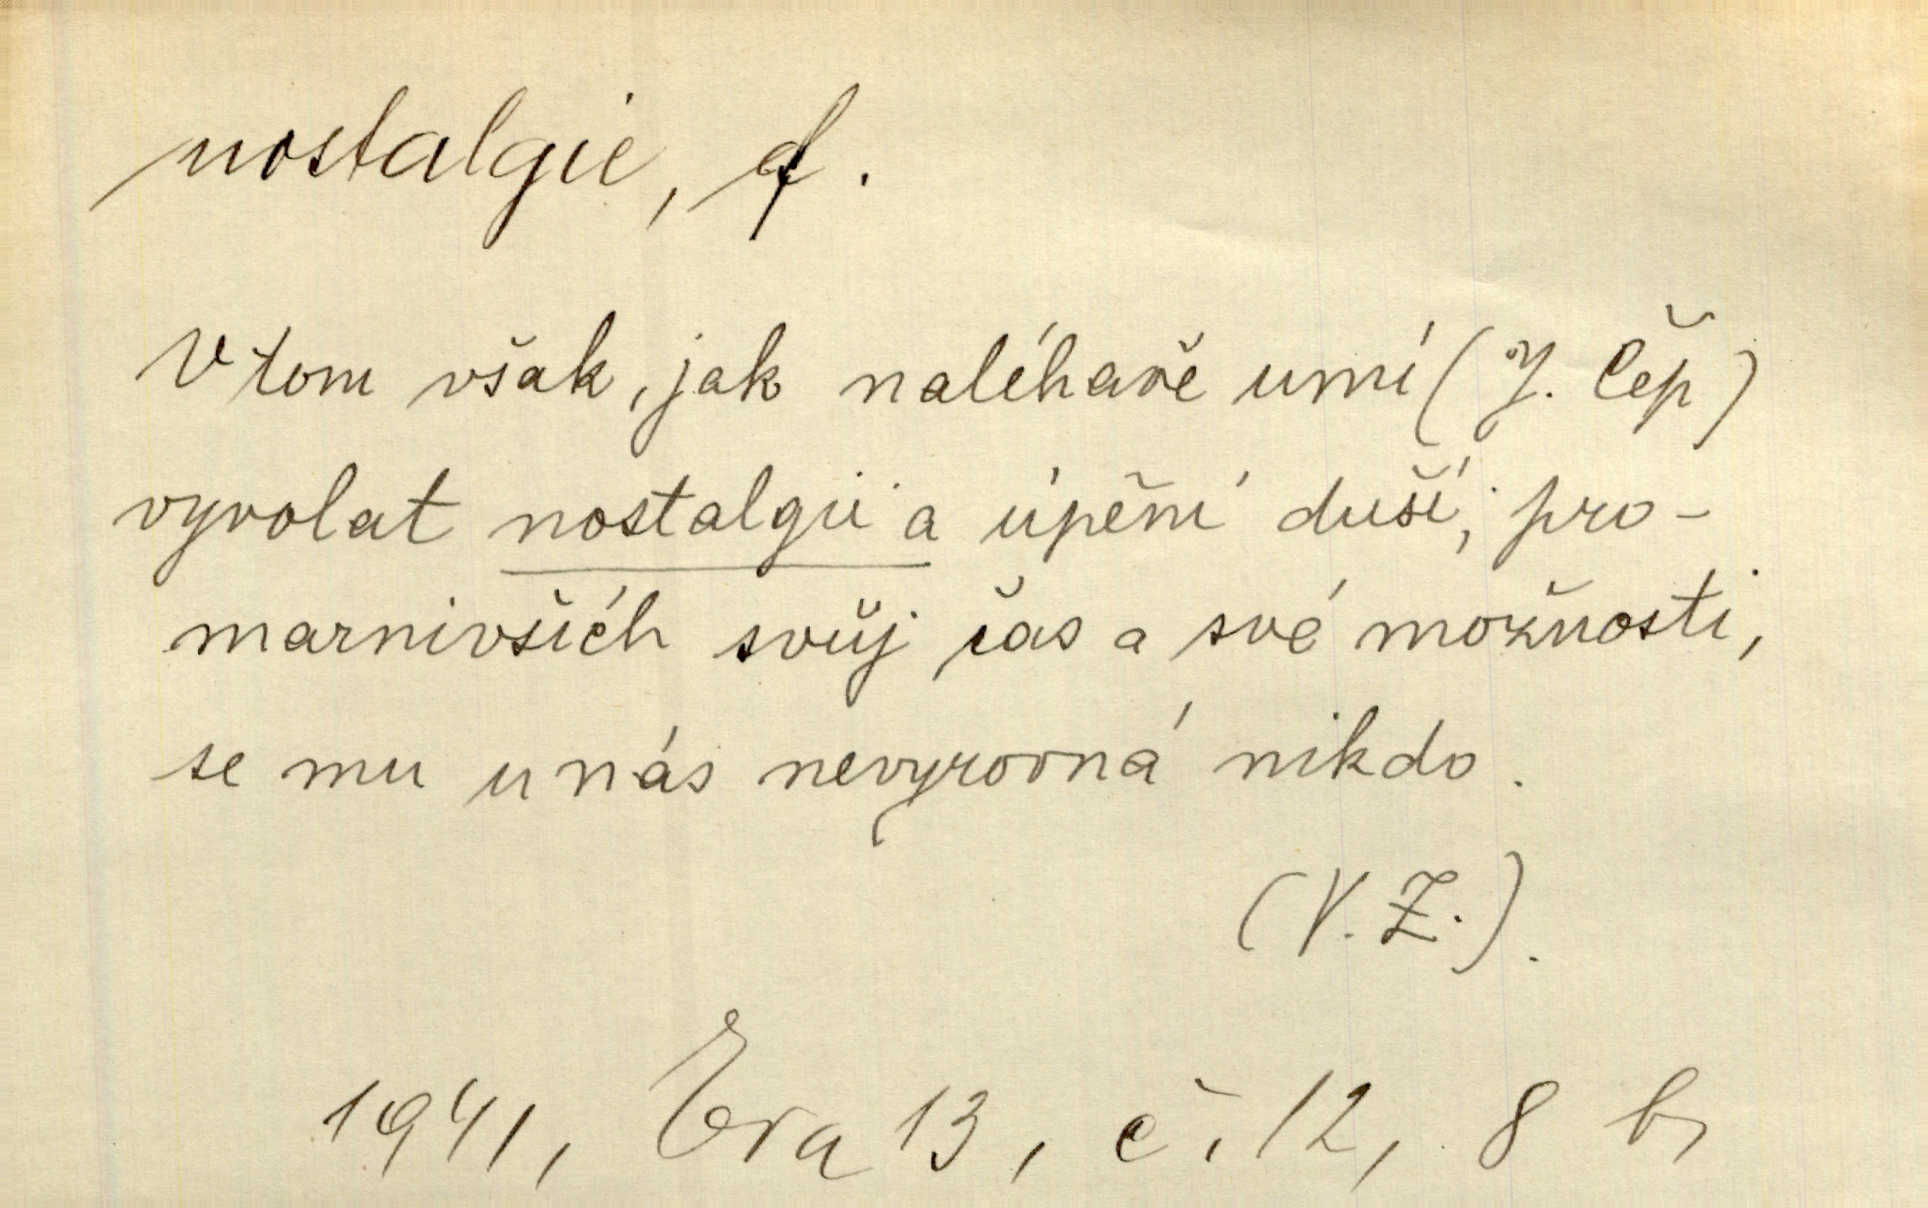 nostalgie, f.
V tom však, jak naléhavě umí (J. Čep)
vyvolat nostalgii a úpění duší, pro-
marnivších svůj čas a své možnosti,
se mu u nás nevyrovná nikdo.
(V. Z.).
1941, Eva 13, č. 12, 8 b